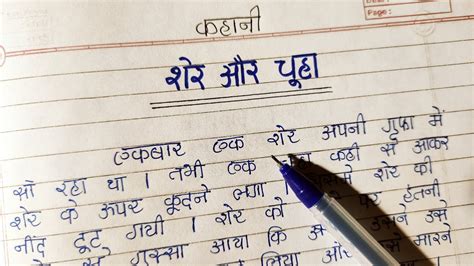 Page:
कहानी
शेर और चूहा
एकबार एक शेर अपनी गुफा में
सो रहा था । तभी एक कहीं से आकर
शेर के ऊपर कूदने लगा । शेर की
नींद टूट गयी । शेर को पर इतनी
से गुस्सा आया कि उसने उसे
लिया और मारने